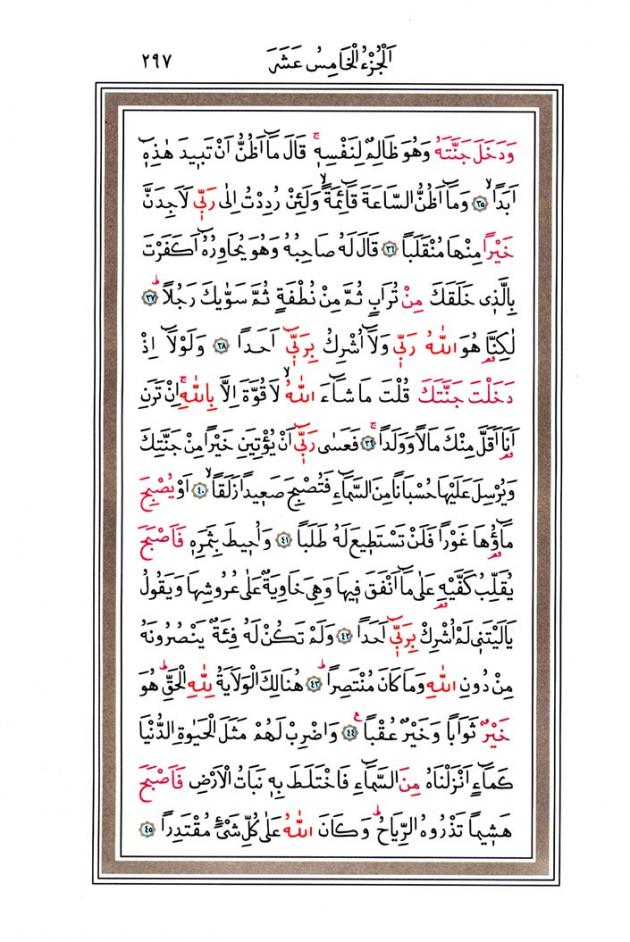 اَلْجُزْءُ الْخَامِسُ عَشَرَ ٢٩٧
وَدَخَلَ جَنَّتَهُ وَهُوَ ظَالِمٌ لِنَفْسِهٖۚ قَالَ مَٓا اَظُنُّ اَنْ تَبٖيدَ هٰذِهٖٓ
اَبَدًاۙ ٣٥ وَمَٓا اَظُنُّ السَّاعَةَ قَٓائِمَةًۙ وَلَئِنْ رُدِدْتُ اِلٰى رَبّٖى لَاَجِدَنَّ
خَيْرًا مِنْهَا مُنْقَلَبًا ٣٦ قَالَ لَهُ صَاحِبُهُ وَهُوَ يُحَاوِرُهُٓ اَكَفَرْتَ
بِالَّذٖى خَلَقَكَ مِنْ تُرَابٍ ثُمَّ مِنْ نُطْفَةٍ ثُمَّ سَوّٰيكَ رَجُلًاؕ ٣٧
لٰكِنَّا۬ هُوَ اللّٰهُ رَبّٖى وَلَٓا اُشْرِكُ بِرَبّٖٓى اَحَدًا ٣٨ وَلَوْلَٓا اِذْ
دَخَلْتَ جَنَّتَكَ قُلْتَ مَا شَٓاءَ اللّٰهُۙ لَا قُوَّةَ اِلَّا بِاللّٰهِۚ اِنْ تَرَنِ
اَنَا۬ اَقَلَّ مِنْكَ مَالًا وَوَلَدًاۚ ٣٩ فَعَسٰى رَبّٖٓى اَنْ يُؤْتِيَنِ خَيْرًا مِنْ جَنَّتِكَ
وَيُرْسِلَ عَلَيْهَا حُسْبَانًا مِنَ السَّمَٓاءِ فَتُصْبِحَ صَعٖيدًا زَلَقًاۙ ٤٠ اَوْ يُصْبِحَ
مَٓاؤُ۬هَا غَوْرًا فَلَنْ تَسْتَطٖيعَ لَهُ طَلَبًا ٤١ وَاُحٖيطَ بِثَمَرِهٖ فَاَصْبَحَ
يُقَلِّبُ كَفَّيْهِ عَلٰى مَٓا اَنْفَقَ فٖيهَا وَهِىَ خَاوِيَةٌ عَلٰى عُرُوشِهَا وَيَقُولُ
يَا لَيْتَنٖى لَمْ اُشْرِكْ بِرَبّٖٓى اَحَدًا ٤٢ وَلَمْ تَكُنْ لَهُ فِئَةٌ يَنْصُرُونَهُ
مِنْ دُونِ اللّٰهِ وَمَا كَانَ مُنْتَصِرًاؕ ٤٣ هُنَالِكَ الْوَلَايَةُ لِلّٰهِ الْحَقِّؕ هُوَ
خَيْرٌ ثَوَابًا وَخَيْرٌ عُقْبًا۟ ٤٤ وَاضْرِبْ لَهُمْ مَثَلَ الْحَيٰوةِ الدُّنْيَا
كَمَٓاءٍ اَنْزَلْنَاهُ مِنَ السَّمَٓاءِ فَاخْتَلَطَ بِهٖ نَبَاتُ الْاَرْضِ فَاَصْبَحَ
هَشٖيمًا تَذْرُوهُ الرِّيَاحُؕ وَكَانَ اللّٰهُ عَلٰى كُلِّ شَىْءٍ مُقْتَدِرًا ٤٥